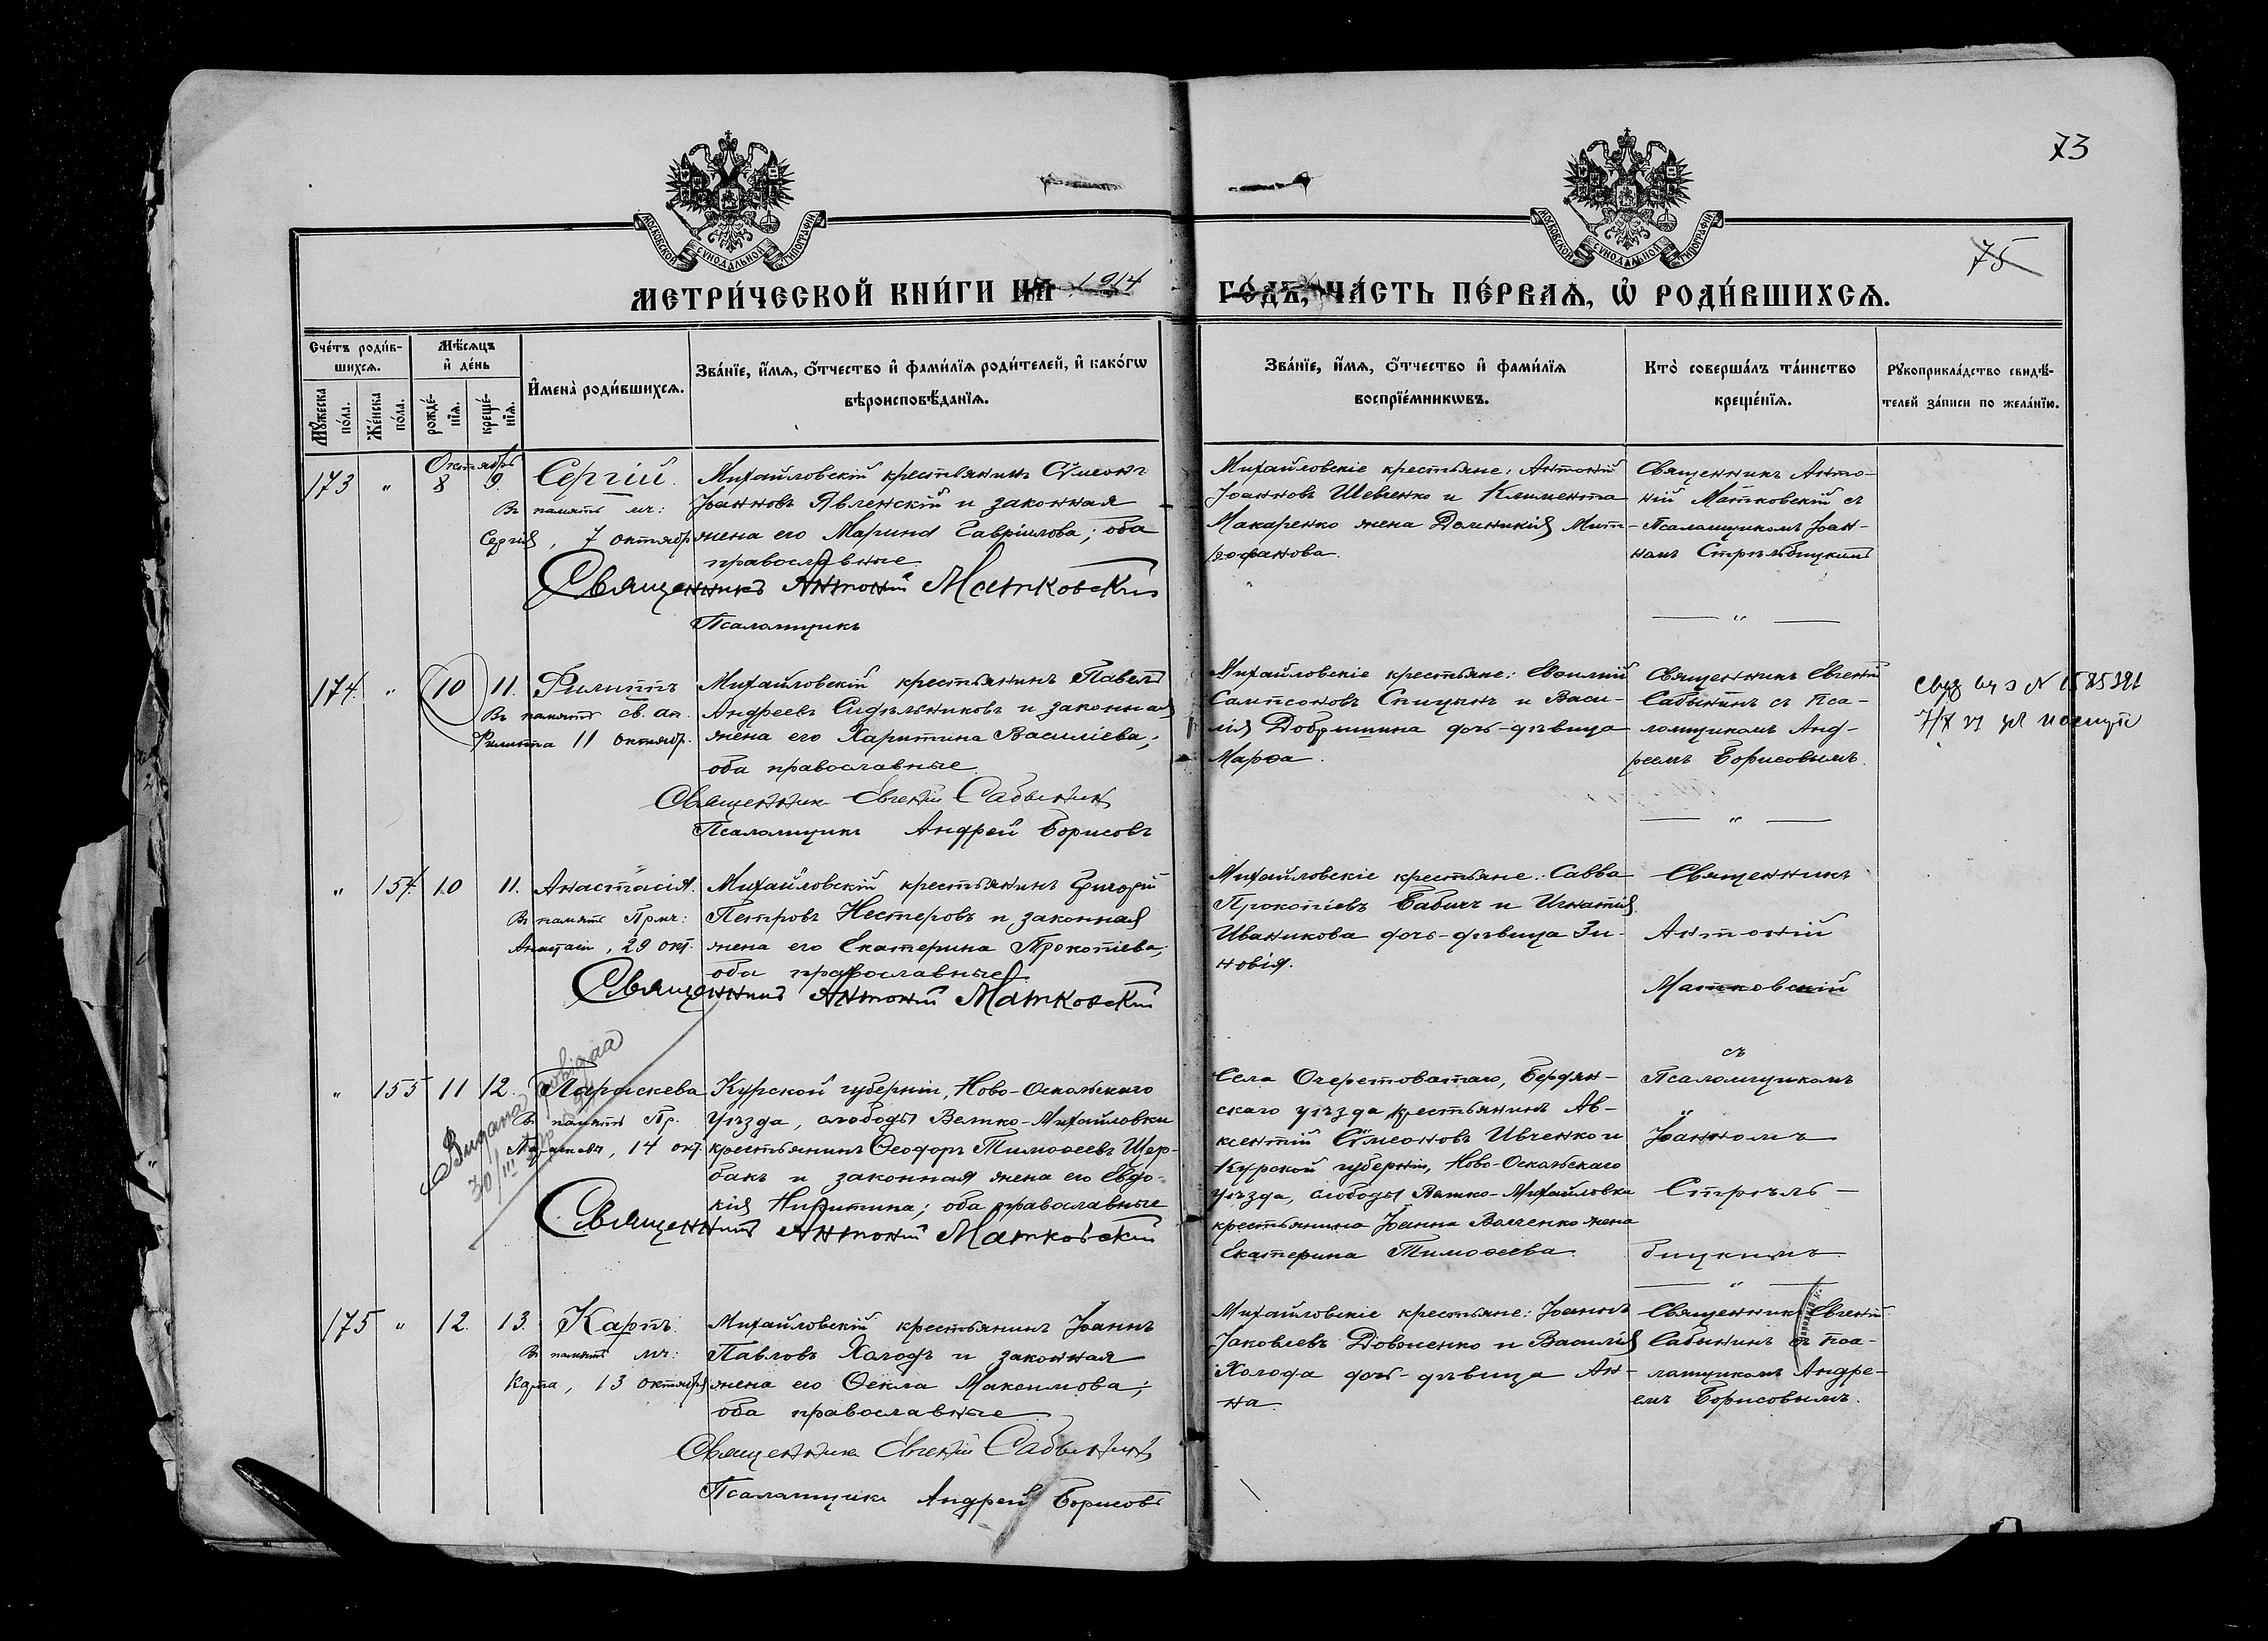 73
75
МОСКОВСКОЙ СѴНОДАЛЬНОЙ ТИПОГРАФІИ
МОСКОВСКОЙ СѴНОДАЛЬНОЙ ТИПОГРАФІИ
МЕТРИ́ЧЕСКОЙ КНИ́ГИ НА 1914 ГО́ДЪ, ЧА́СТЬ ПЕ́РВАѦ, Ѡ҆ РОДИ́ВШИХСѦ.
Сче́тъ роди́в-
шихсѧ.
Мꙋ́жеска по́ла.
Же́нска по́ла.
Мѣ́сѧцъ
и҆ де́нь
рожде́-
нїѧ.
креще́-
нїѧ.
И҆мена̀ роди́вшихсѧ.
Зва́нїе, и҆́мѧ, ѻ҆́тчество и҆ фами́лїѧ роди́телей, и҆ како́гѡ
вѣроисповѣ́данїѧ.
Зва́нїе, и҆́мѧ, ѻ҆́тчество и҆ фами́лїѧ
воспрїе́мникѡвъ.
Кто̀ соверша́лъ та́инство
креще́нїѧ.
Рꙋкоприкла́дство свидѣ́-
телей за́писи по жела́нїю.
Октябрь
173 " 8 9. Сергій.
Въ память мч:
Сергія, 7 октябр.
Михайловскій крестьянинъ Сѵмеонъ
Іоанновъ Явленскій и законная
жена его Марина Гавріилова; оба
православные
Священникъ Антоній Матковскій
Псаломщикъ
Михайловскіе крестьяне: Антоній
Іоанновъ Шевченко и Климента
Макаренко жена Домникія Мит-
рофанова.
Священникъ Анто-
ній Матковскій съ
Псаломщикомъ Іоан-
номъ Стрѣльбицкимъ
174. " 10 11. Филиппъ
Въ память св. ап.
Филиппа 11 октябр.
Михайловскій крестьянинъ Павелъ
Андреевъ Сидѣльниковъ и законная
жена его Харитина Василіева;
оба православные
Священникъ Евгеній Сабынинъ
Псаломщикъ Андрей Борисовъ
Михайловскіе крестьяне: Евѳимій
Сампсоновъ Спицынъ и Васи-
лія Добрицина дочь-дѣвица
Марѳа.
Священникъ Евгеній
Сабынинъ съ Пса-
ломщикомъ Анд-
реемъ Борисовымъ.
" 154. 10 11. Анастасія.
Въ память Прмч:
Анастасіи, 29 окт.
Михайловскій крестьянинъ Григорій
Петровъ Нестеровъ и законная
жена его Екатерина Прокопіева,
оба православные
Священникъ Антоній Матковскій
Михайловскіе крестьяне: Савва
Прокопіевъ Бабичъ и Игнатія
Иваникова дочь-дѣвица Зи-
новія.
Священникъ
Антоній
Матковскій
съ
Псаломщикомъ
Іоанномъ
Стрѣль-
бицкимъ
" 155 11 12. Параскева
Въ память Пр.
Параскевы, 14 окт.
Курской губерніи, Ново-Оскольскаго
уѣзда, слободы Велико-Михайловки
крестьянинъ Ѳеодоръ Тимоѳеевъ Щер-
бакъ и законная жена его Евдо-
кія Никитина; оба православные
Священникъ Антоній Матковскій
Села Очеретоватаго, Бердян-
скаго уѣзда крестьянинъ Ав-
ксентій Сѵмеоновъ Ивченко и
Курской губерніи, Ново-Оскольскаго
уѣзда, слободы Велико-Михайловки
крестьянина Іоанна Волченко жена
Екатерина Тимоѳеева.
175 " 12. 13. Карпъ.
Въ память мч:
Карпа, 13 октября
Михайловскій крестьянинъ Іоаннъ
Павловъ Холодъ и законная
жена его Ѳекла Максимова;
оба православные
Священникъ Евгеній Сабынинъ
Псаломщикъ Андрей Борисовъ
Михайловскіе крестьяне: Іоаннъ
Іаковлевъ Довженко и Василія
Холода дочь-дѣвица Ан-
на.
Священникъ Евгеній
Сабынинъ съ Пса-
ломщикомъ Андре-
емъ Борисовымъ.